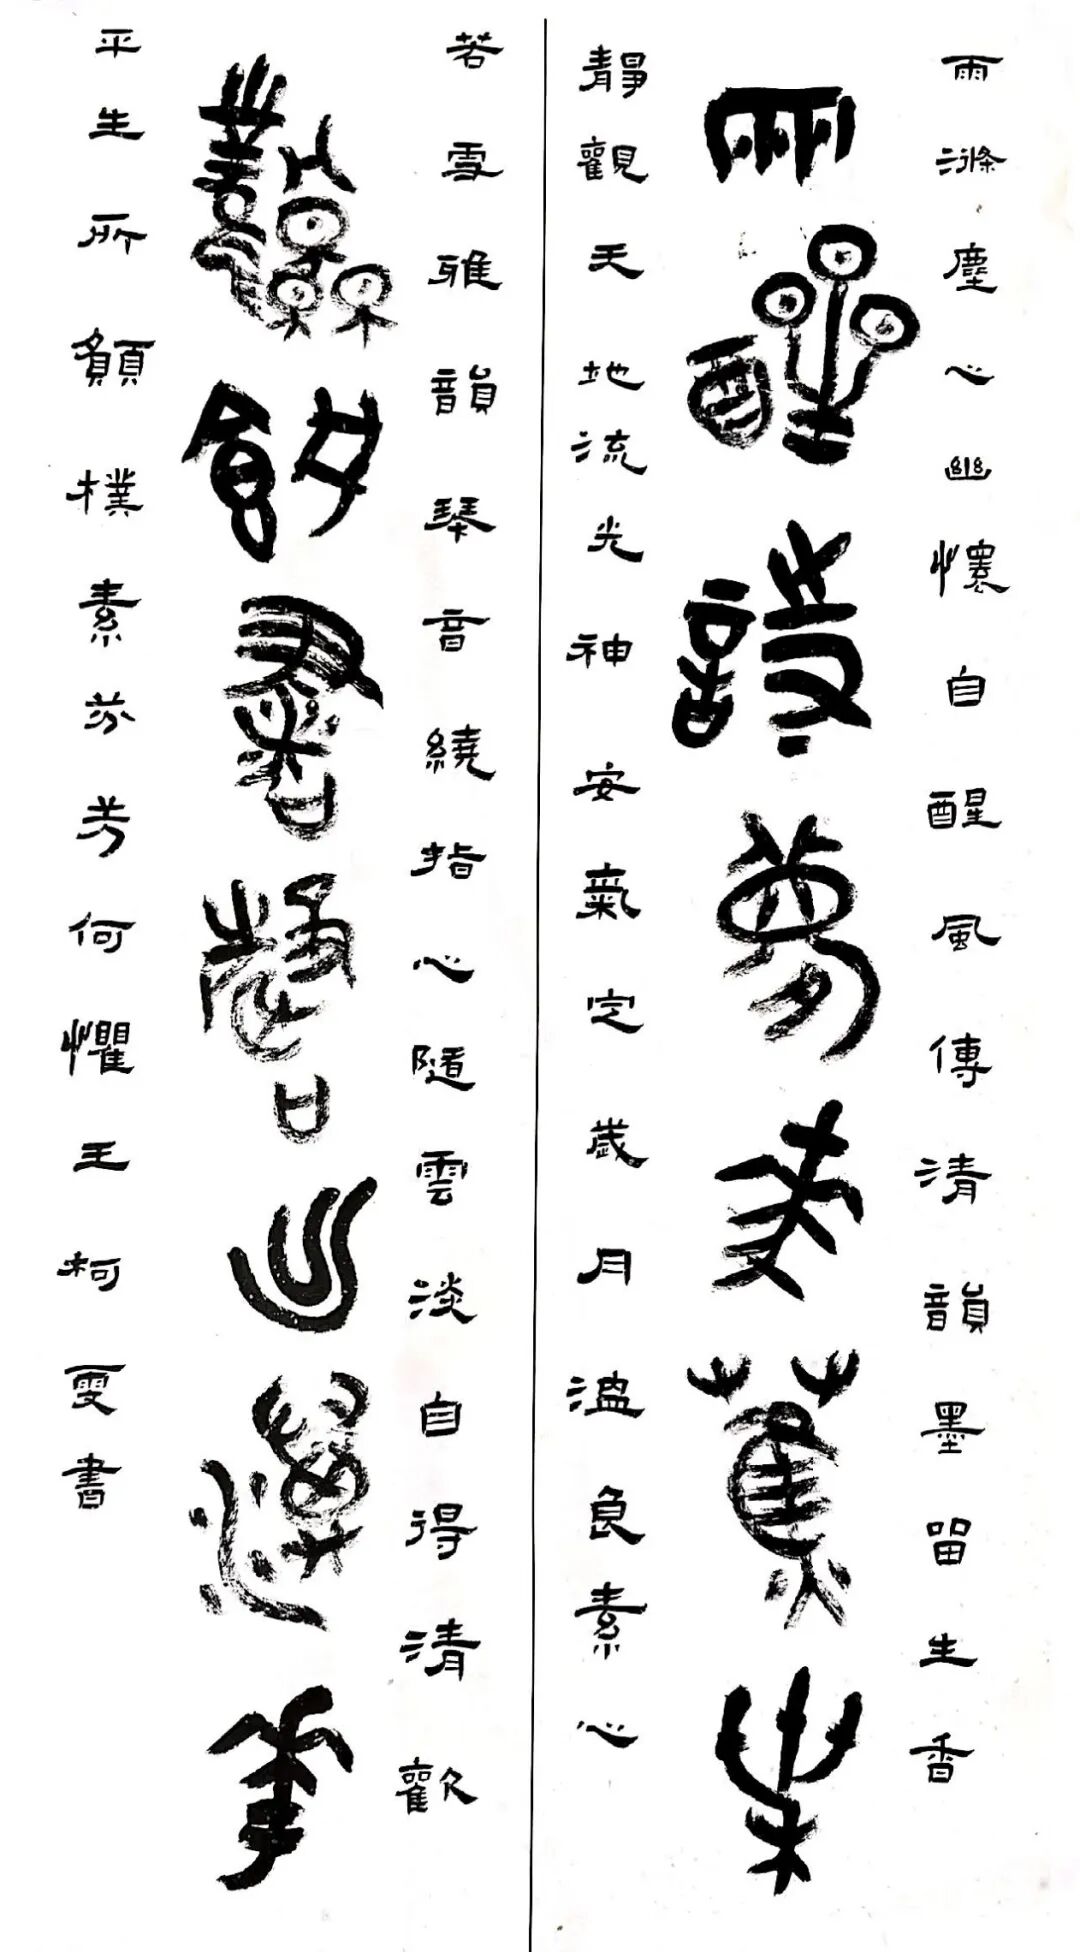 雨滌塵心幽懷自醒風傳清韻墨留生香
雨醒詩夢來蕉葉
靜觀天地流光神安氣定歲月溫良素心
若雪雅韻琴音繞指心隨雲淡自得清歡
風載書聲出藕華
平生所願樸素芬芳何懼王柯雯書